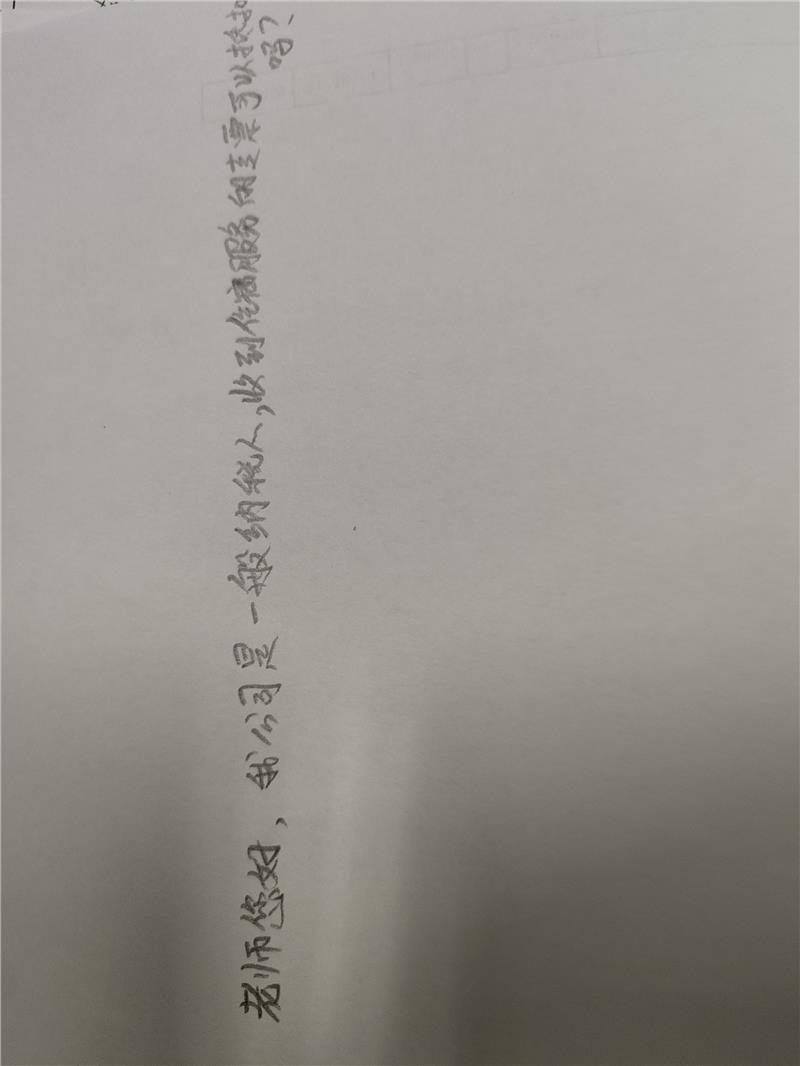 老师您好，我公司是一般纳税人，收到住宿服务的专票可以抵扣
吗？